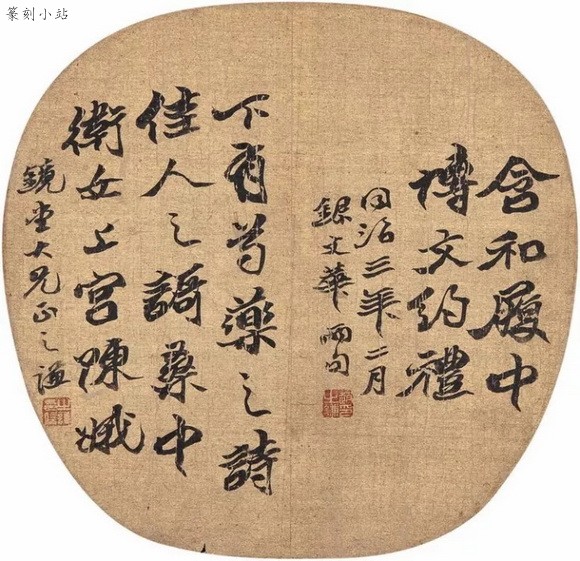 篆刻小站
含和履中
博文約禮
同治三年二月
文 兩句
下有芍藥之詩
佳人之謌桑中
衛女上宮陳娥
鏡堂大兄正之謙